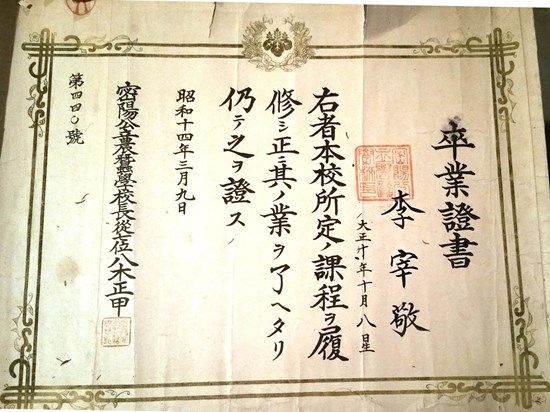 卒業證書
李宰敬
大正十年十月八日生
右者本校所定ノ課程ヲ履
修シ正ニ其ノ業ヲ了ヘタリ
仍テ之ヲ證ス
昭和十四年三月九日
密陽公立農蠶學校長從七位八木正甲
第四四〇號